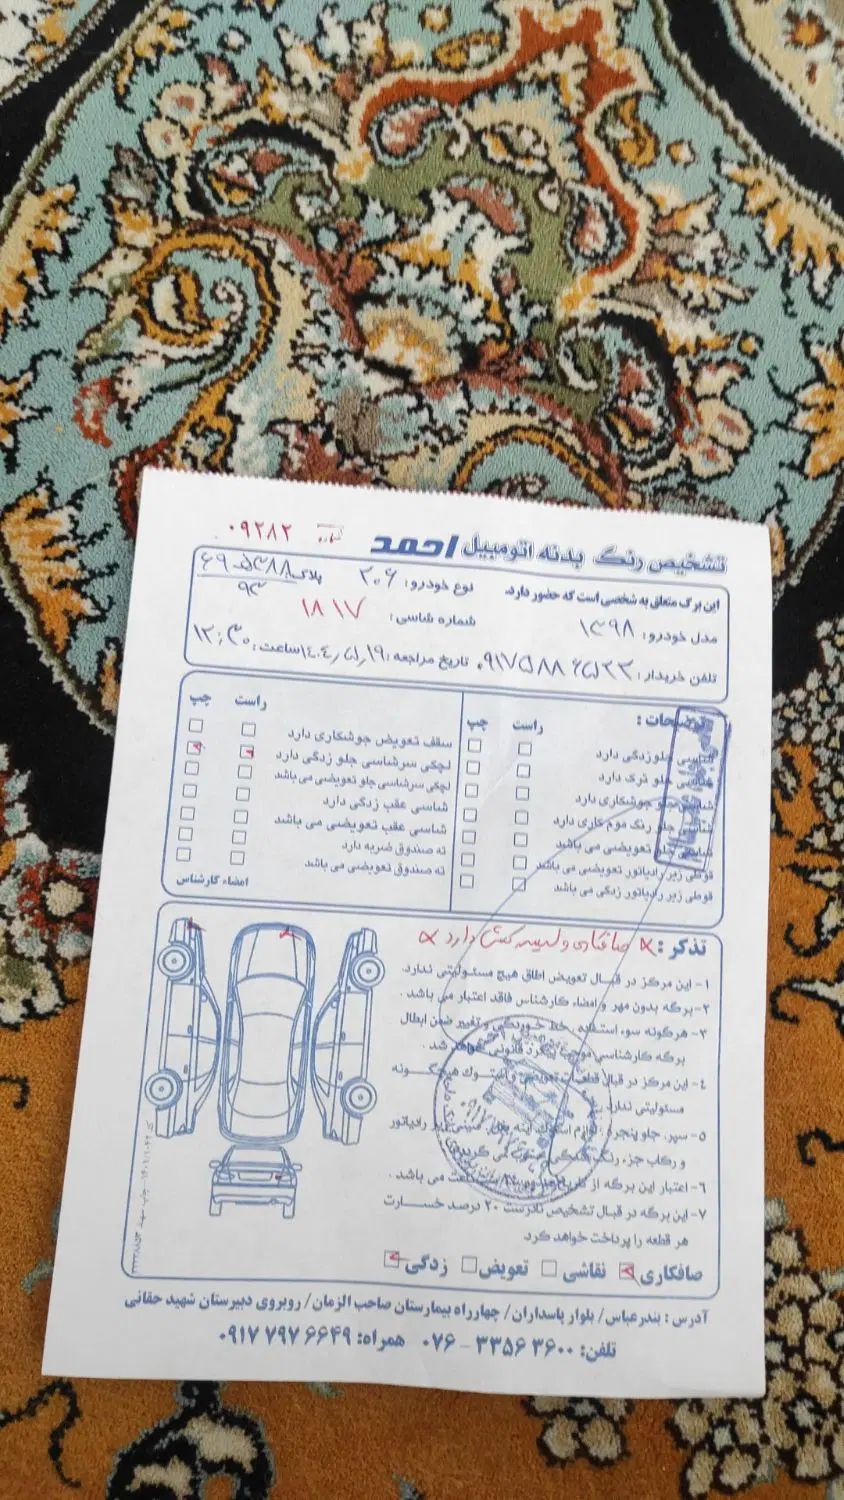 تشخیص رنگ بدنه اتومبیل احمد
شماره ۰۹۲۸۲
این برگ متعلق به شخصی است که حضور دارد.
نوع خودرو: ۲۰۶
پلاک:
مدل خودرو: ۱۳۹۸
شماره شاسی: ۱۸۱۷
تلفن خریدار:
تاریخ مراجعه: ۱۴۰۴٫۵٫۱۹
ساعت: ۱۲:۳۰
توضیحات:
راست
چپ
شاسی جلو زدگی دارد
شاسی جلو ترک دارد
شاسی جلو جوشکاری دارد
شاسی جلو رنگ موم کاری دارد
شاسی جلو تعویضی می باشد
قوطی زیر رادیاتور تعویضی می باشد
قوطی زیر رادیاتور زدگی می باشد
راست
چپ
سقف تعویض جوشکاری دارد
لچکی سرشاسی جلو زدگی دارد
لچکی سرشاسی جلو تعویضی می باشد
شاسی عقب زدگی دارد
شاسی عقب تعویضی می باشد
ته صندوق ضربه دارد
ته صندوق تعویضی می باشد
امضاء کارشناس
تذکر: صافکاری و لیسه کشی دارد
۱- این مرکز در قبال تعویض اطاق هیچ مسئولیتی ندارد.
۲- برگه بدون مهر و امضاء کارشناس فاقد اعتبار می باشد.
۳- هرگونه سوء استفاده، خط خوردگی و تغییر ضمن ابطال
برگه کارشناسی موجب پیگرد قانونی خواهد شد.
۴- این مرکز در قبال قطعات تعویضی و استوک هیچگونه
مسئولیتی ندارد.
۵- سپر، جلو پنجره، زیر رادیاتور
و رکاب جزء رنگ
۶- اعتبار این برگه از تاریخ می باشد.
۷- این برگه در قبال تشخیص نادرست ۲۰ درصد خسارت
هر قطعه را پرداخت خواهد کرد
صافکاری نقاشی تعویض زدگی
آدرس: بندرعباس/ بلوار پاسداران/ چهارراه بیمارستان صاحب الزمان/ روبروی دبیرستان شهید حقانی
تلفن: ۳۳۵۶۳۶۰۰ - ۰۷۶ همراه: ۰۹۱۷۷۹۷۶۶۴۹